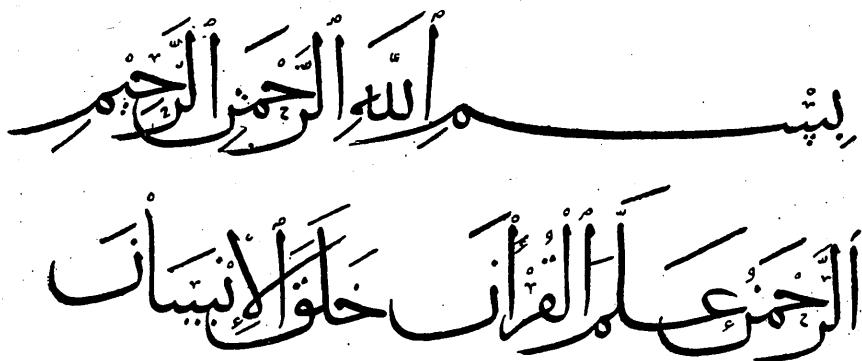 بِسْمِ ٱللَّهِ ٱلرَّحْمَٰنِ ٱلرَّحِيمِ
ٱلرَّحْمَٰنُ عَلَّمَ ٱلْقُرْأٰنَ خَلَقَ ٱلْإِنْسَانَ